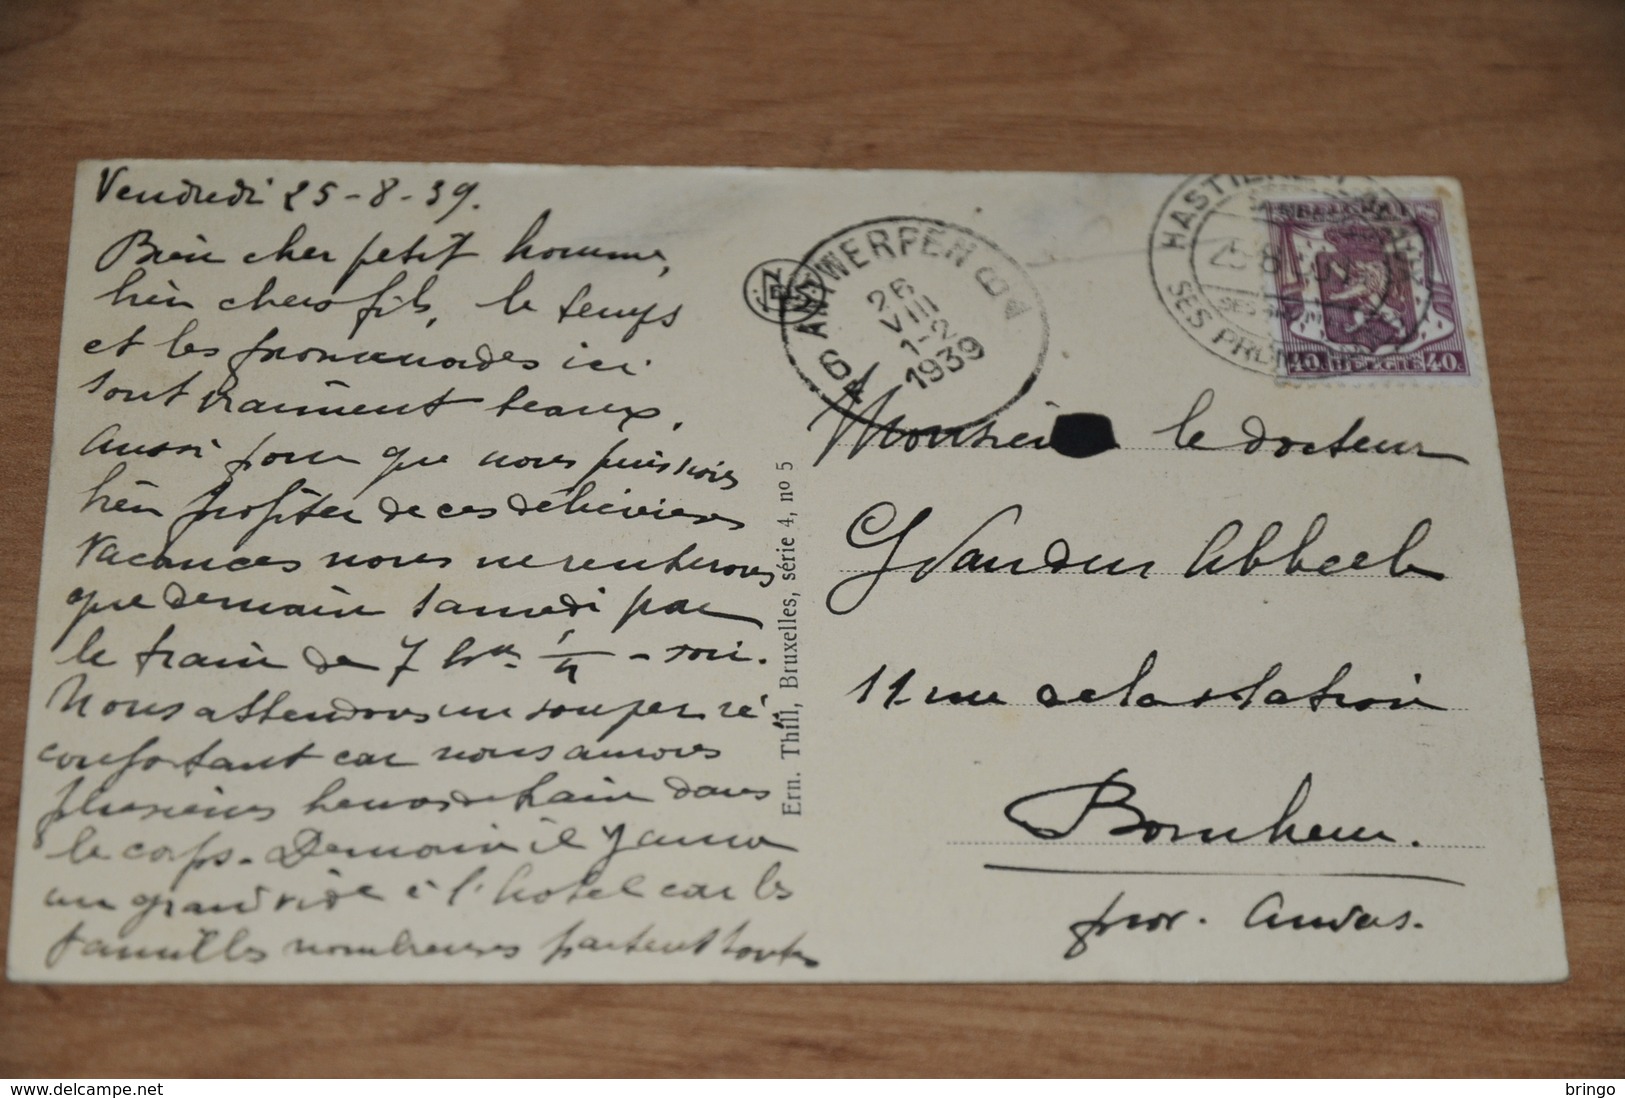 Vendredi 25-8-39.
Bien cher petit homme,
bien chers fils, le temps
et les promenades ici
sont vraiment beaux.
Aussi pour que nous puissions
bien profiter de ces délicieuses
vacances nous ne rentrerons
que demain samedi par
le train de 7 hrs 1/4 - soir.
Nous attendons un souper ré-
confortant car nous aurons
plusieurs heures de train dans
le corps. Demain il y aura
un grand vide à l'hôtel car les
familles nombreuses partent toutes
Ern. Thill, Bruxelles, série 4, no 5
ANTWERPEN
26
VIII
1-2
1939
HASTIERE
SES PROM
25-8
BELGIE
40. 40.
Monsieur le docteur
G Vanden Abbeele
11 rue de la station
Bornhem.
prov. Anvers.
bringo